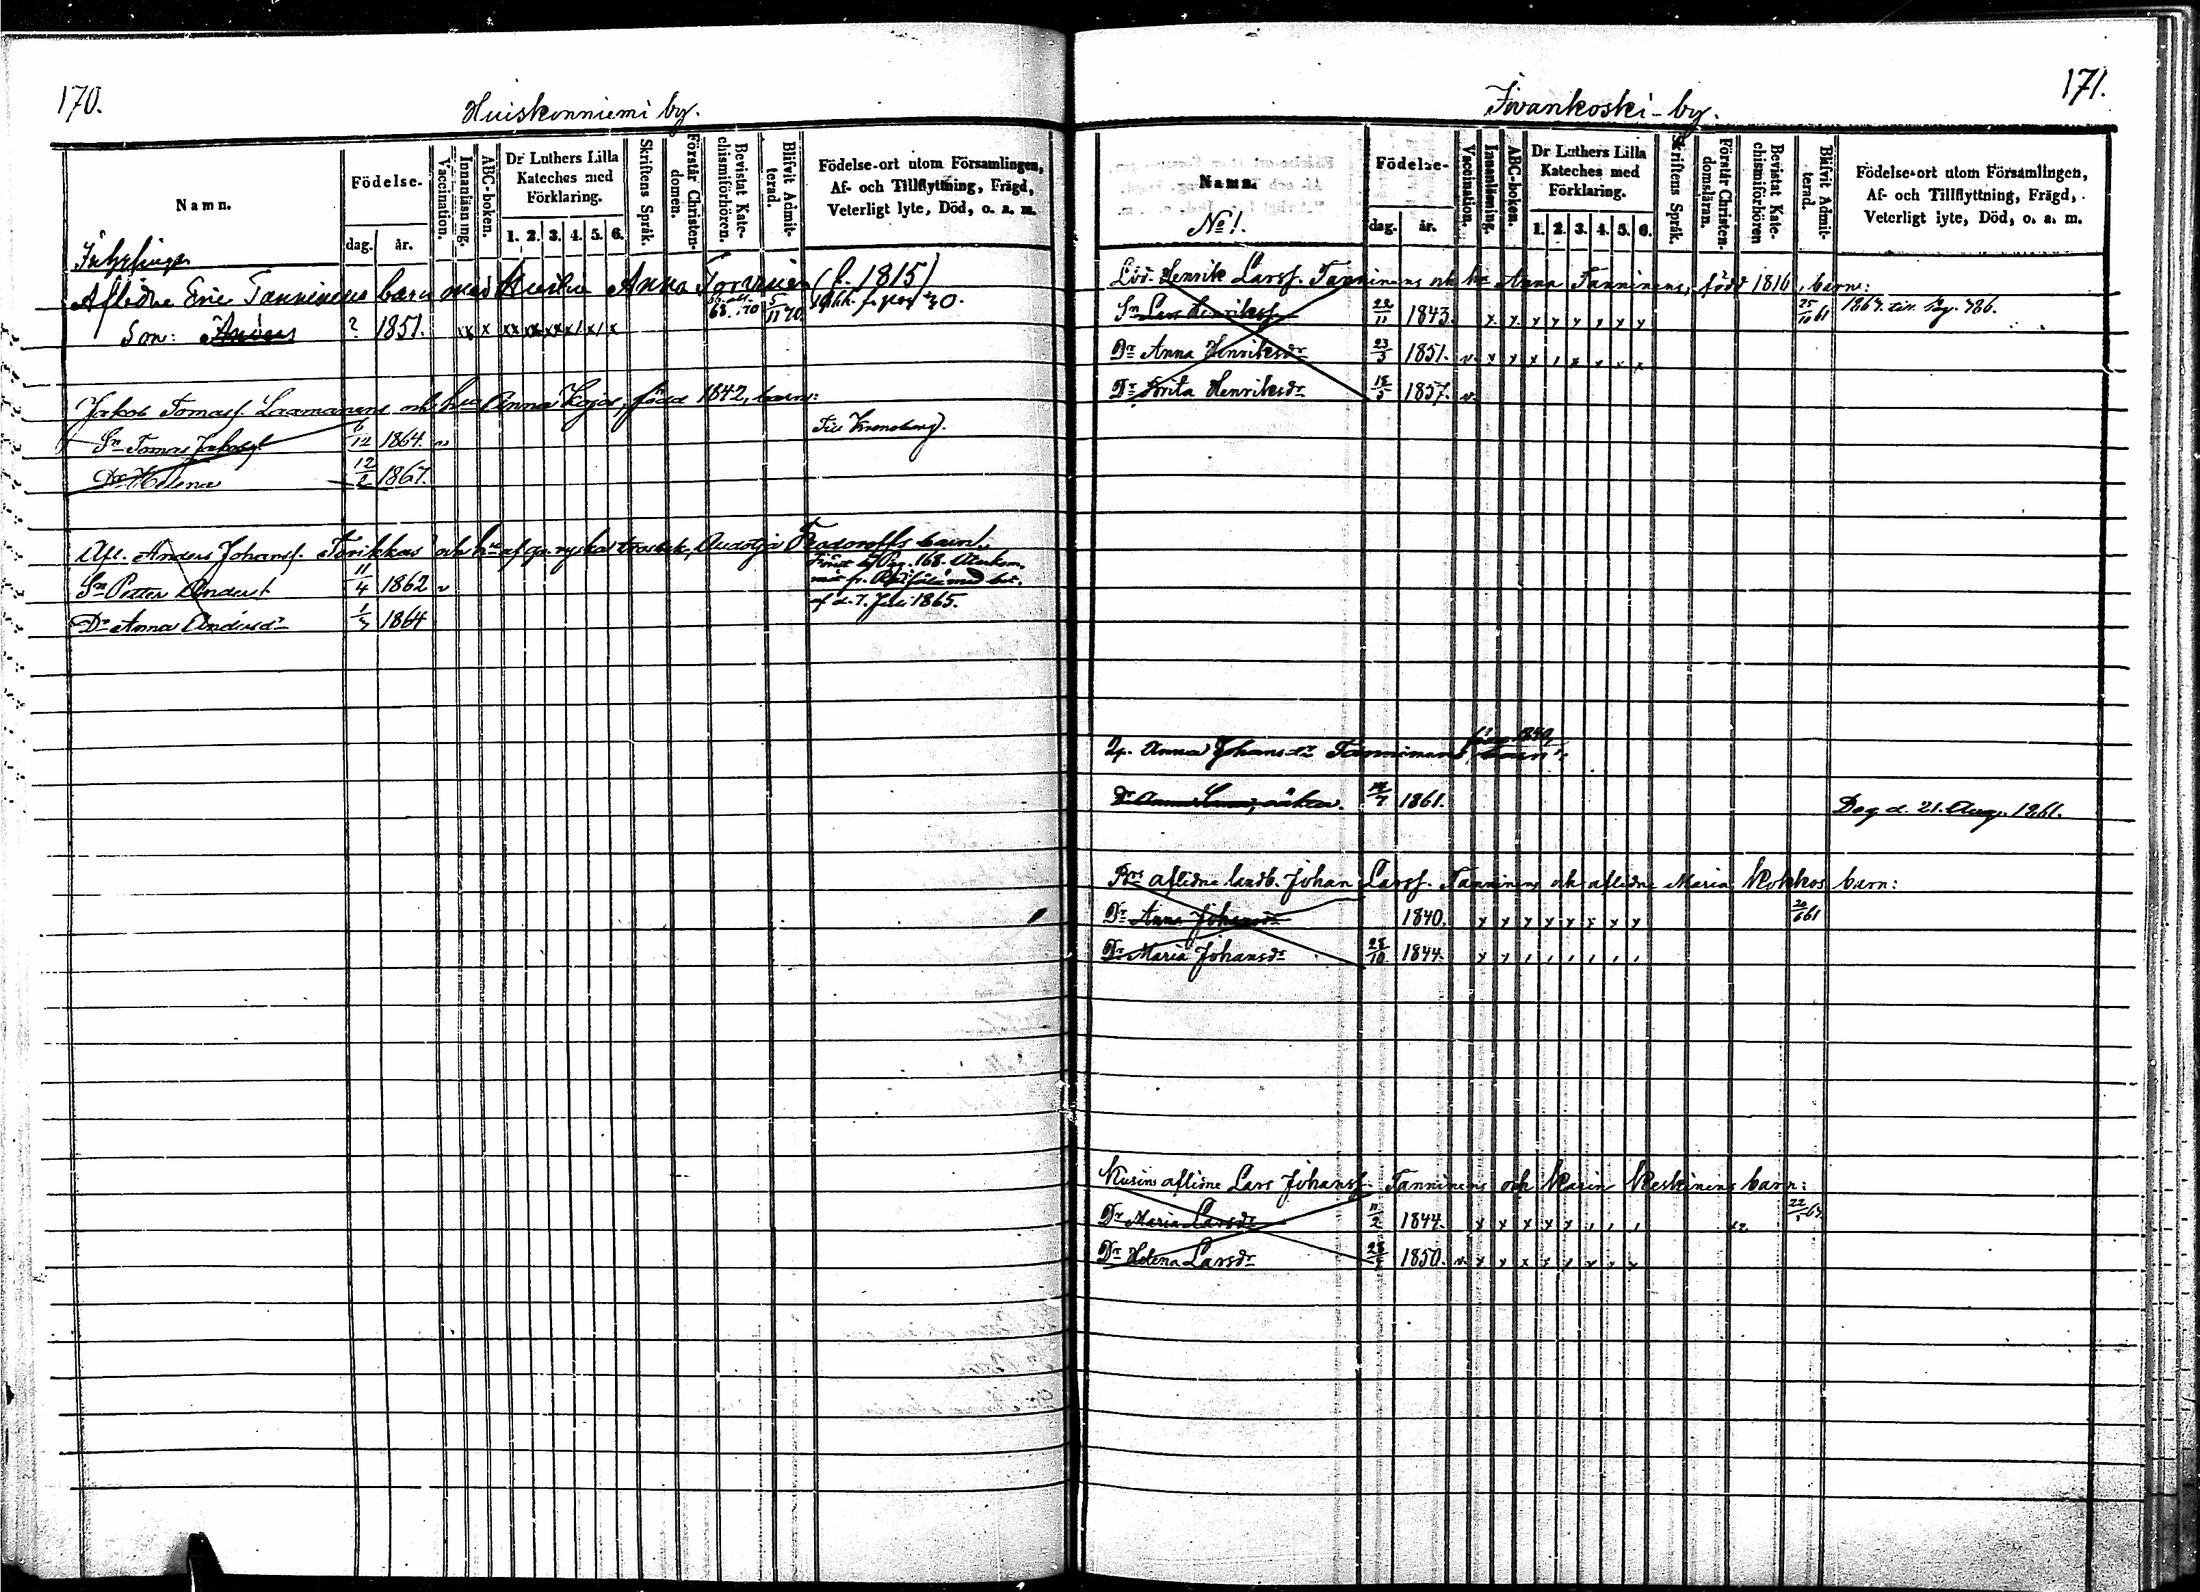 170.
Huiskonniemi by.
Namn.
Födelse-
dag.
år.
Vaccination.
Innanläsning.
ABC-boken.
Dr Luthers Lilla Kateches med Förklaring.
1. 2. 3. 4. 5. 6.
Skriftens Språk.
Förstår Christendomen.
Bevistat Katechismiförhören.
Blifvit Admitterad.
Födelse-ort utom Församlingen,
Af- och Tillflyttning, Frägd,
Veterligt lyte, Död, o. a. m.
Inhysinge
Aflidne Eric Tanninens barn med Hustru Anna (f. 1815)
Son: Anders ? 1851. xx x xx xx xx x/ x/ x 68. 70 5/11 70.
Jakob Tomasf. Laamanens och hu Anna Kojos, född 1842, barn:
Sn Tomas Jakobsf 6/12 1864. v Till Kronoborg.
Dr Helena 12/2 1867.
Afl. Anders Johansf. Torikkas och hu af gr. ryska trosbek. Audotja Feodoroffs barn.
Sn Petter Andersf 11/4 1862 v
Förut Pag. 168. Återkom.
med bet.
af d. 7. Juli 1865.
Dr Anna Andersdr 1/7 1864
171.
Iivankoski-by.
Namn.
No 1.
Födelse-
dag.
år.
Vaccination.
Innanläsning.
ABC-boken.
Dr Luthers Lilla Kateches med Förklaring.
1. 2. 3. 4. 5. 6.
Skriftens Språk.
Förstår Christendomsläran.
Bevistat Katechismiförhören
Blifvit Admitterad.
Födelse-ort utom Församlingen,
Af- och Tillflyttning, Frägd,
Veterligt lyte, Död, o. a. m.
Lösd. Henrik Larsf. Tanninens och hu Anna Tanninens, född 1816, barn:
Sn Lars Henriksf. 22/11 1843. x x y y y y y y 25/10 61 1867. till Pg. 786.
Dr Anna Henriksdr 23/3 1851. v. x x x , x x x x
Dr Brita Henriksdr 18/5 1857. v.
2. Anna Johansdr Tanninens, född 1840, barn:
Dr Anna Lovisa, oäkta. 14/7 1861. Dog d. 21. Aug. 1861.
Brs aflidne landb. Johan Larsf. Tanninens och aflidne Maria Kokkos barn:
Dr Anna Johansdr 1840. x x y y y x y y 20/6 61
Dr Maria Johansdr 28/10 1844. x x , , , , , ,
Kusins aflidne Lars Johansf. Tanninens och Karin Keskinens barn:
Dr Maria Larsdr 11/2 1844. x x x x x , , ,
Dr Helena Larsdr 1850. v. x x x x x x x x